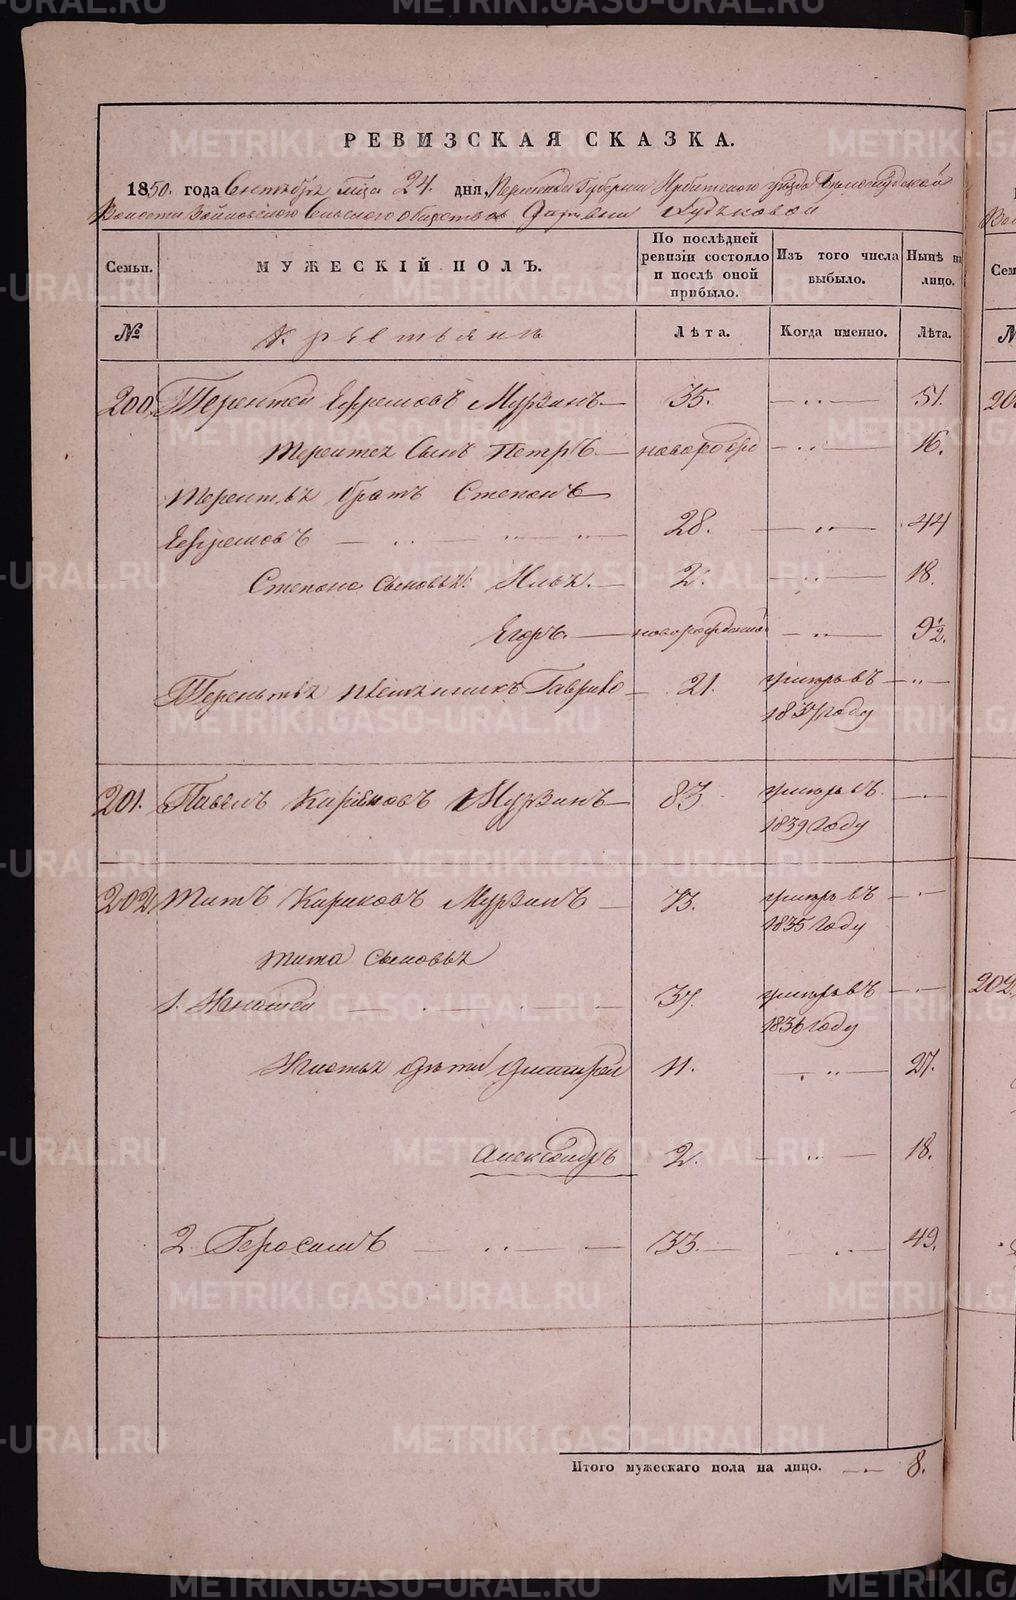 РЕВИЗСКАЯ СКАЗКА.
1850. года Сентября мца 24. дня, Пермской Губернии Ирбитского уезда
Волости Сельского Общества Деревни Худяковой
Семьи.
МУЖЕСКІЙ ПОЛЪ.
По послѣдней ревизіи состояло и послѣ оной прибыло.
Изъ того числа выбыло.
Нынѣ на лицо.
№
Крестьяне
Лѣта.
Когда именно.
Лѣта.
200. Терентей Ефремовъ Мурзинъ 35. 51.
Терентья Сынъ Петръ новорожд 16.
Терентья братъ Степанъ
Ефремовъ 28. 44
Степана сыновья: Илья. 2. 18.
Егоръ. новорожденной 9 1/2.
Терентья племянникъ Гаврило 21. умеръ въ
1837 году
201. Павелъ Кириковъ Мурзинъ 83 умеръ въ
1839 году
202. Титъ Кириковъ Мурзинъ 73. умеръ въ
1835 году
Тита сыновья
1. 37. умеръ въ
1836 году
дети Дмитрей 11. 27.
Александръ 2. 18.
2 Герасимъ 33. 49.
Итого мужескаго пола на лицо. 8.
METRIKI.GASO-URAL.RU